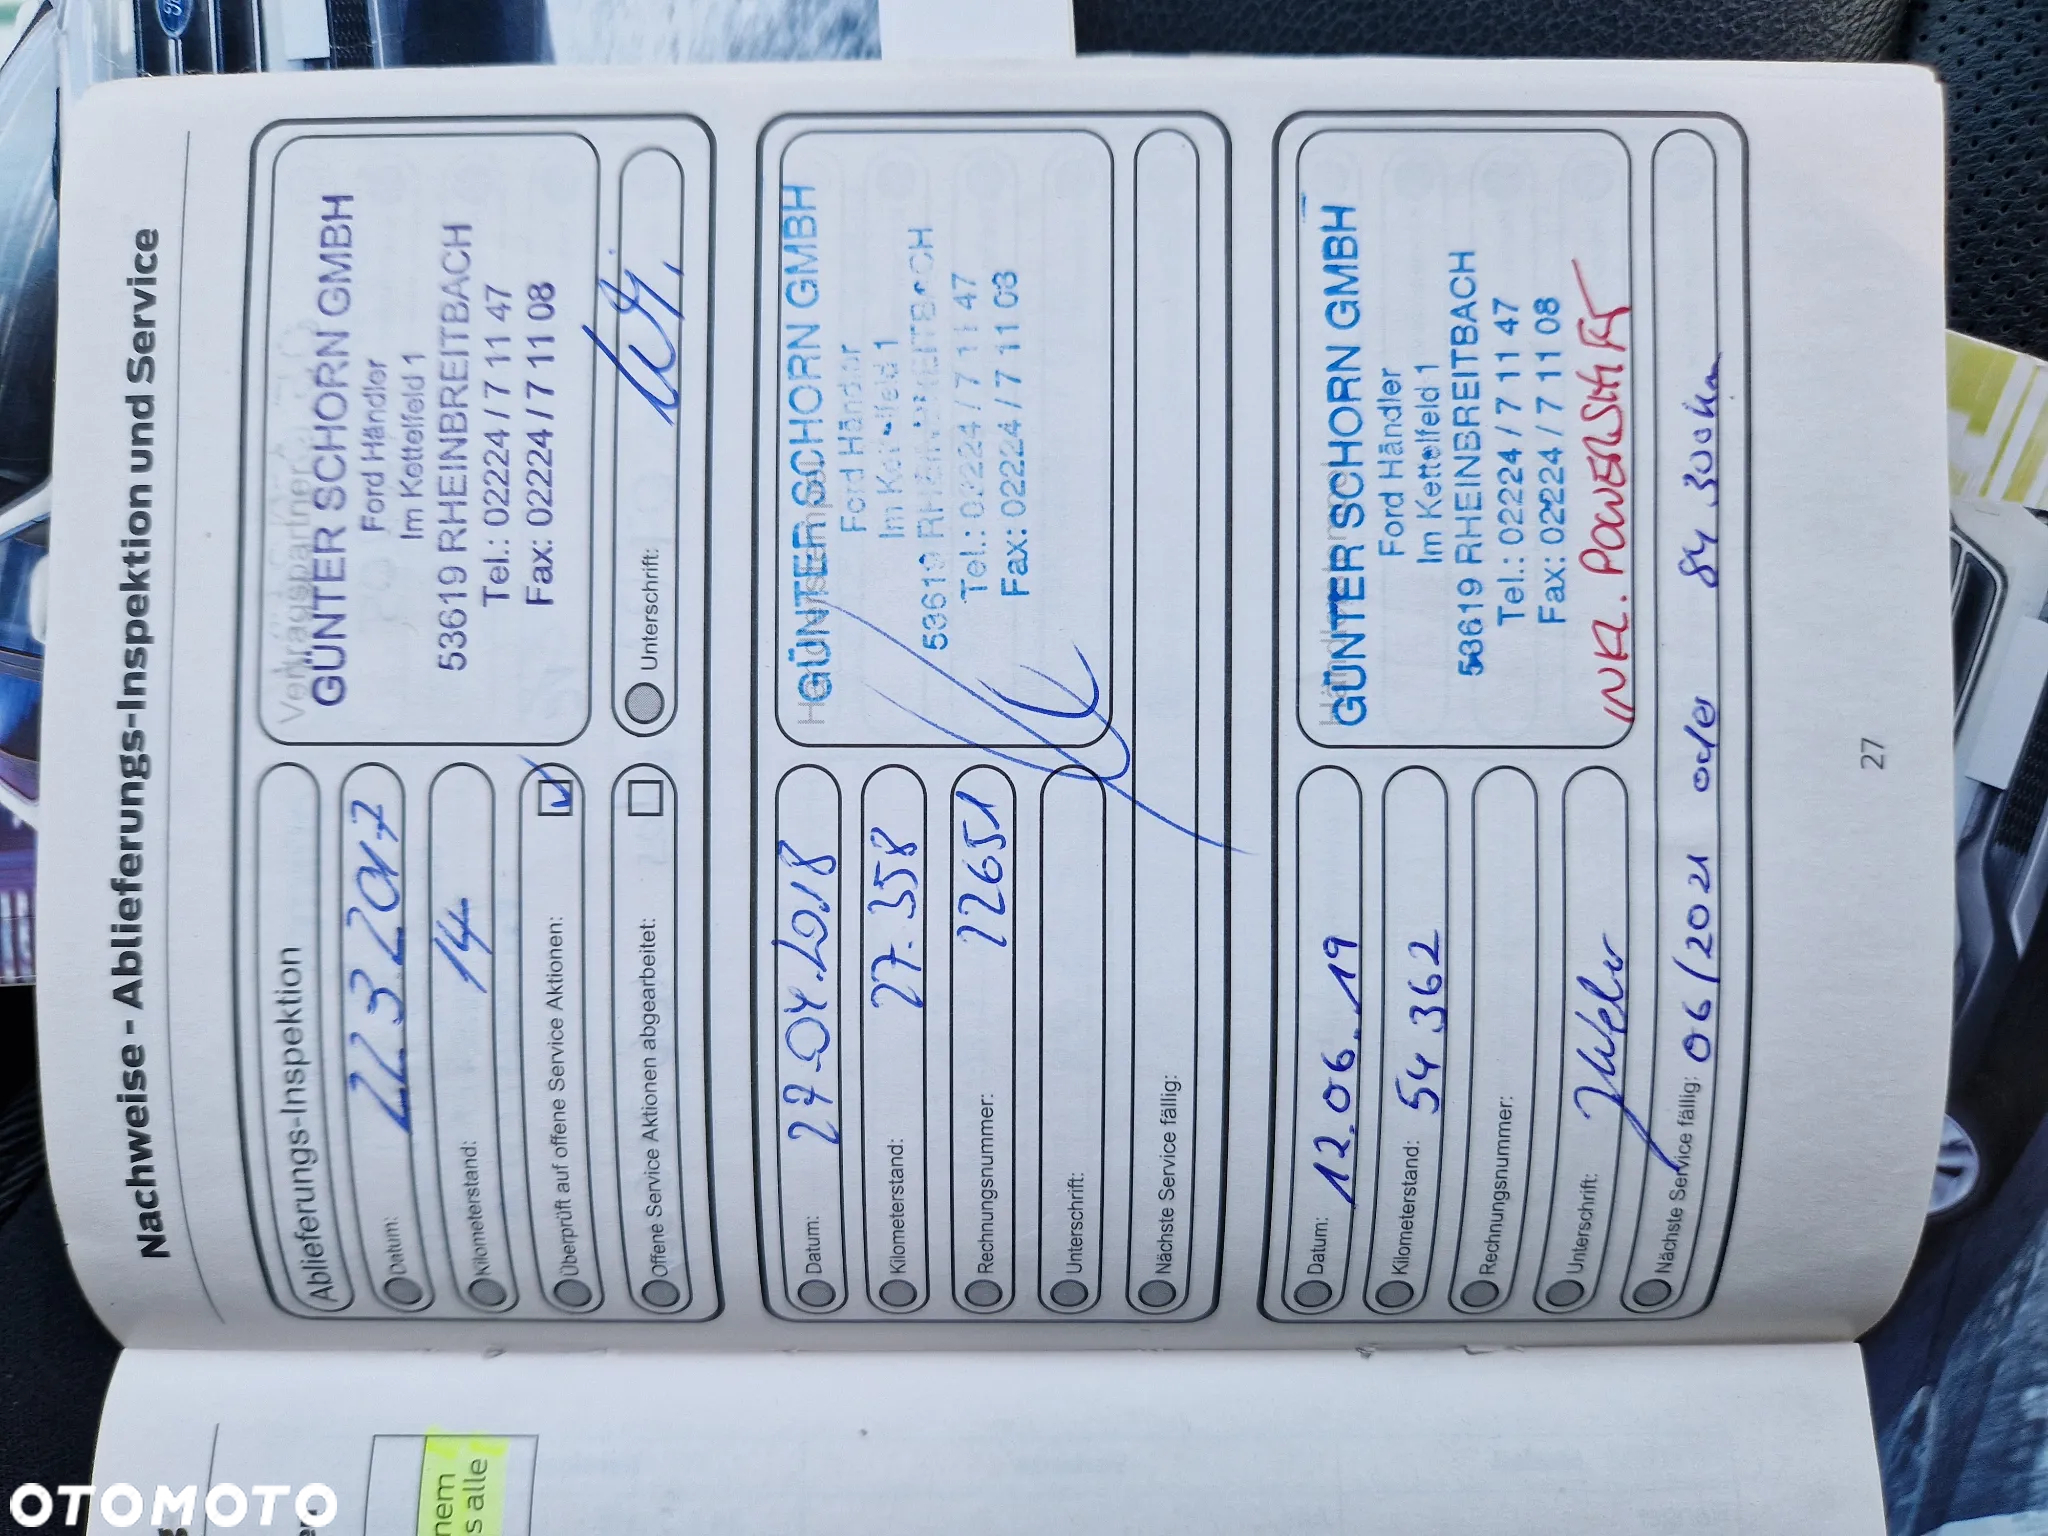 Nachweise - Ablieferungs-Inspektion und Service
Ablieferungs-Inspektion
Datum: 22.3.2017
Kilometerstand: 14
Überprüft auf offene Service Aktionen:
Offene Service Aktionen abgearbeitet:
Vertragspartner
GÜNTER SCHORN GMBH
Ford Händler
Im Kettelfeld 1
53619 RHEINBREITBACH
Tel.: 02224 / 7 11 47
Fax: 02224 / 7 11 08
Unterschrift:
Datum: 27.04.2018
Kilometerstand: 27.358
Rechnungsnummer: 22651
Unterschrift:
Nächste Service fällig:
GÜNTER SCHORN GMBH
Ford Händler
Im Kettelfeld 1
53619 RHEINBREITBACH
Tel.: 02224 / 7 11 47
Fax: 02224 / 7 11 08
Datum: 12.06.19
Kilometerstand: 54.362
Rechnungsnummer:
Unterschrift:
Nächste Service fällig: 06/2021 oder 84.300km
GÜNTER SCHORN GMBH
Ford Händler
Im Kettelfeld 1
53619 RHEINBREITBACH
Tel.: 02224 / 7 11 47
Fax: 02224 / 7 11 08
INKL. POWERSHIFT
27
nem
s alle
OTOMOTO